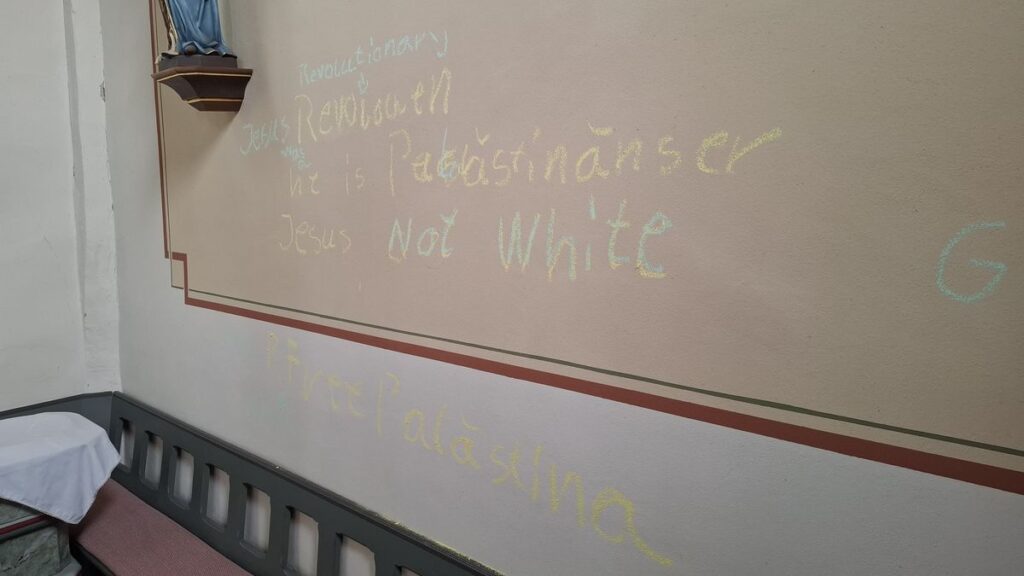 Revolutionary
Jesus
he is Palästinänser
Jesus Not White
G
Free Palästina